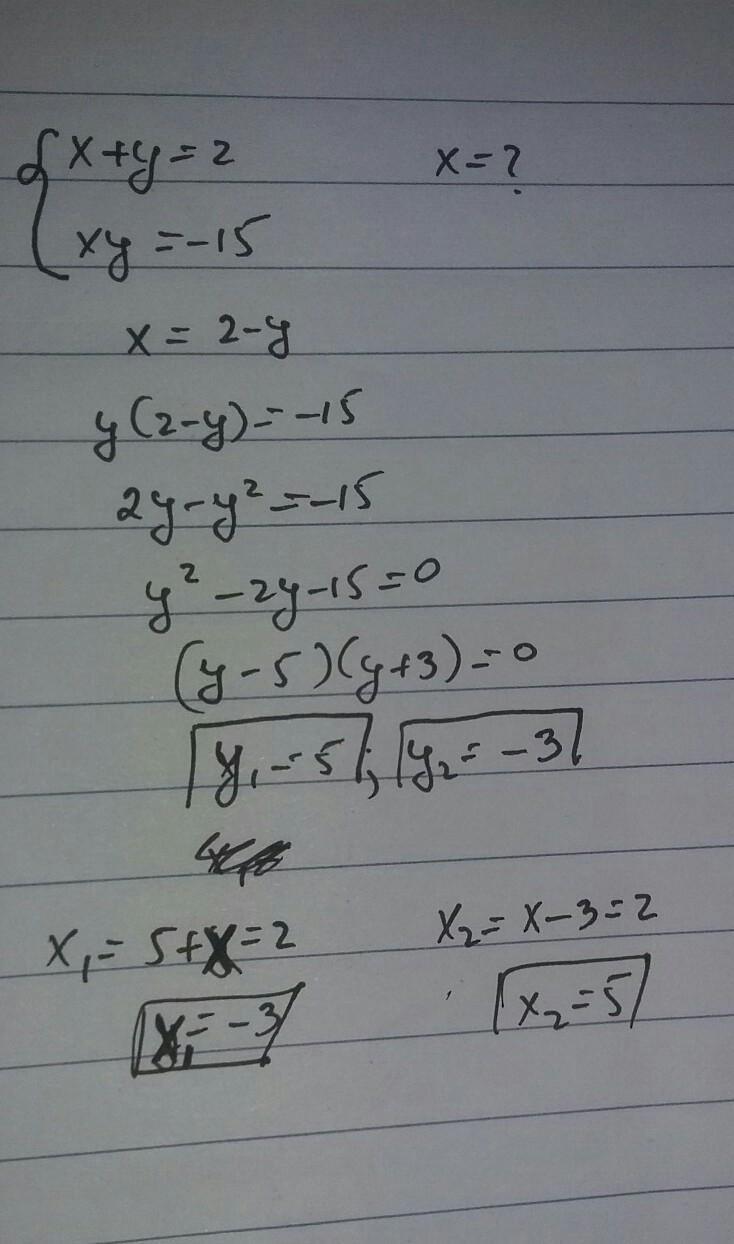 { x+y=2 x=?
xy=-15
x= 2-y
y(2-y)=-15
2y-y²=-15
y²-2y-15=0
(y-5)(y+3)=0
y₁=5; y₂=-3
x₁= 5+x=2 x₂= x-3=2
x₁=-3 x₂=5